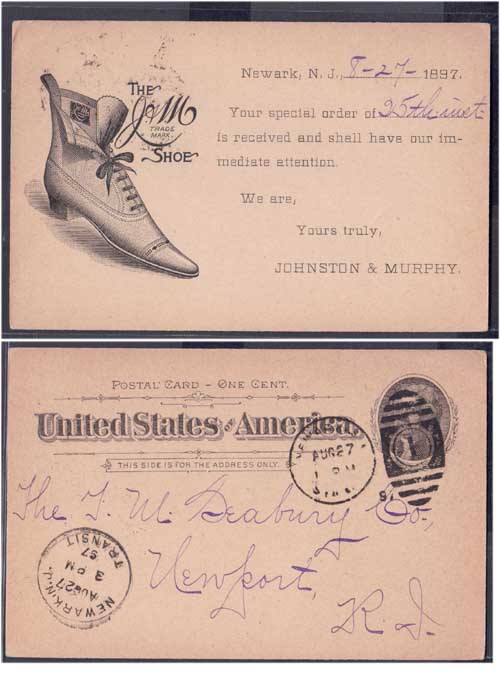 THE
J&M
TRADE
MARK
SHOE
Newark, N. J., 8-27- 1897.
Your special order of 25th inst.
is received and shall have our im-
mediate attention.
We are,
Yours truly,
JOHNSTON & MURPHY.
POSTAL CARD - ONE CENT.
United States of America.
THIS SIDE IS FOR THE ADDRESS ONLY.
AUG 27
1 PM
97
1
The T. M. Seabury Co.,
Newport,
R. I.
NEWARK, N.J.
AUG 27
3 PM
97
TRANSIT